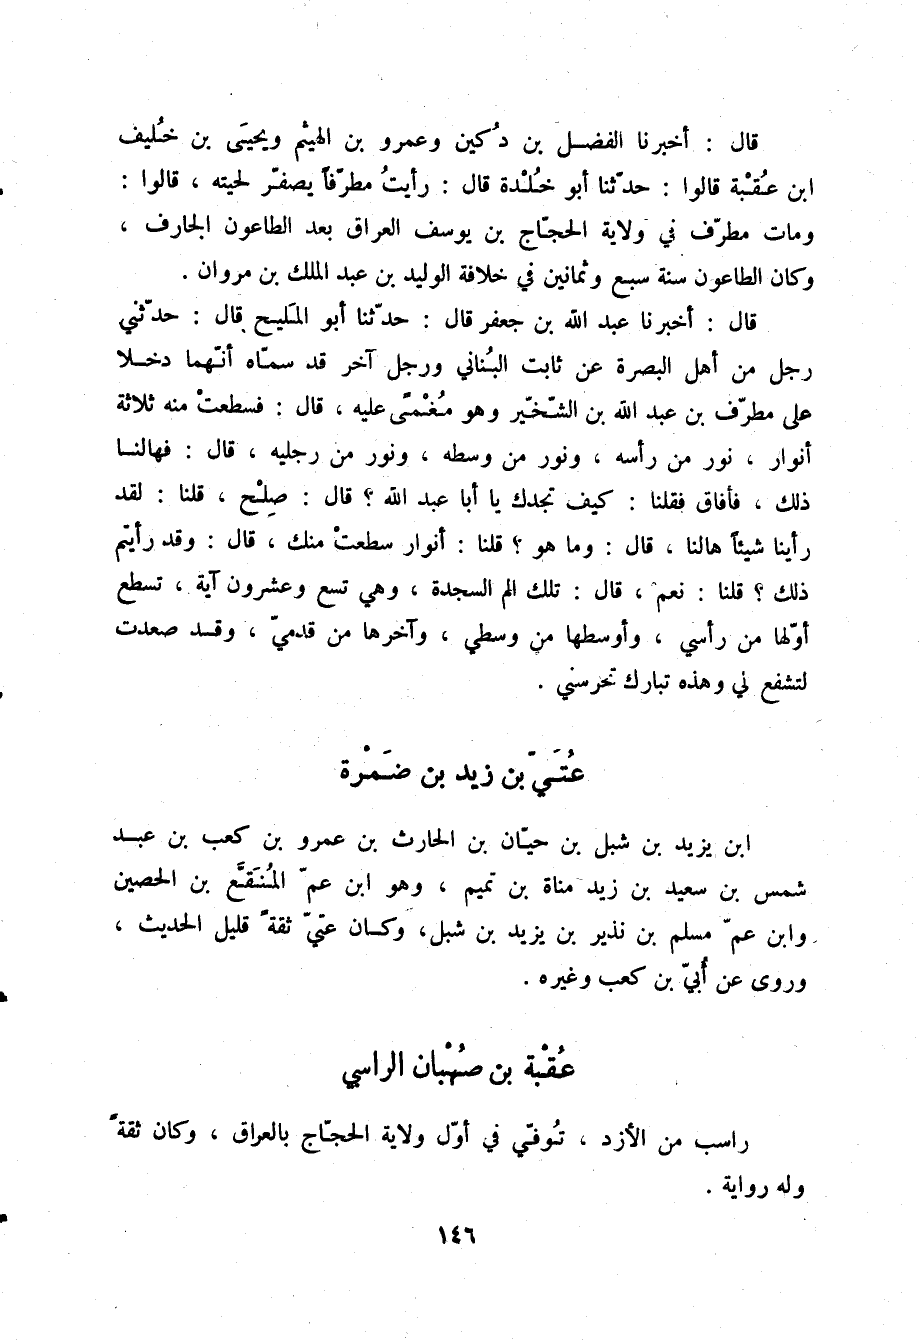 قال : أخبرنا الفضل بن دُكين وعمرو بن الهيْثم ويحيَى بن خُليف
ابن عُقْبة قالوا : حدّثنا أبو خُلْدة قال : رأيتُ مطرّفاً يصفّر لحيته ، قالوا :
ومات مطرّف في ولاية الحجّاج بن يوسف العراق بعد الطاعون الجارف ،
وكان الطاعون سنة سبع وثمانين في خلافة الوليد بن عبد الملك بن مروان .
قال : أخبرنا عبد الله بن جعفر قال : حدّثنا أبو المَليح قال : حدّثني
رجل من أهل البصرة عن ثابت البُناني ورجل آخر قد سمّاه أنّهما دخلا
على مطرّف بن عبد الله بن الشّخّير وهو مُغْمًى عليه ، قال : فسطعتْ منه ثلاثة
أنوار ، نور من رأسه ، ونور من وسطه ، ونور من رجليه ، قال : فهالنا
ذلك ، فأفاق فقلنا : كيف تجدك يا أبا عبد الله ؟ قال : صلِْح ، قلنا : لقد
رأينا شيئاً هالنا ، قال : وما هو ؟ قلنا : أنوار سطعتْ منك ، قال : وقد رأيتم
ذلك ؟ قلنا : نعم ، قال : تلك الم السجدة ، وهي تسع وعشرون آية ، تسطع
أوّلها من رأسي ، وأوسطها من وسطي ، وآخرها من قدميّ ، وقد صعدت
لتشفع لي وهذه تبارك تحرسني .
عُتَيّ بن زيد بن ضَمْرة
ابن يزيد بن شبل بن حيّان بن الحارث بن عمرو بن كعب بن عبد
شمس بن سعيد بن زيد مناة بن تميم ، وهو ابن عمّ المُنَقَّع بن الحصين
وابن عمّ مسلم بن نذير بن يزيد بن شبل، وكان عتيّ ثقةً قليل الحديث ،
وروى عن أُبيّ بن كعب وغيره .
عُقْبة بن صُهْبان الراسي
راسب من الأزد ، تُوفّي في أوّل ولاية الحجّاج بالعراق ، وكان ثقةً
وله رواية .
١٤٦